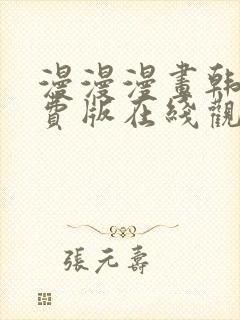 漫漫漫畫韩
費版在綫觀
張元壽